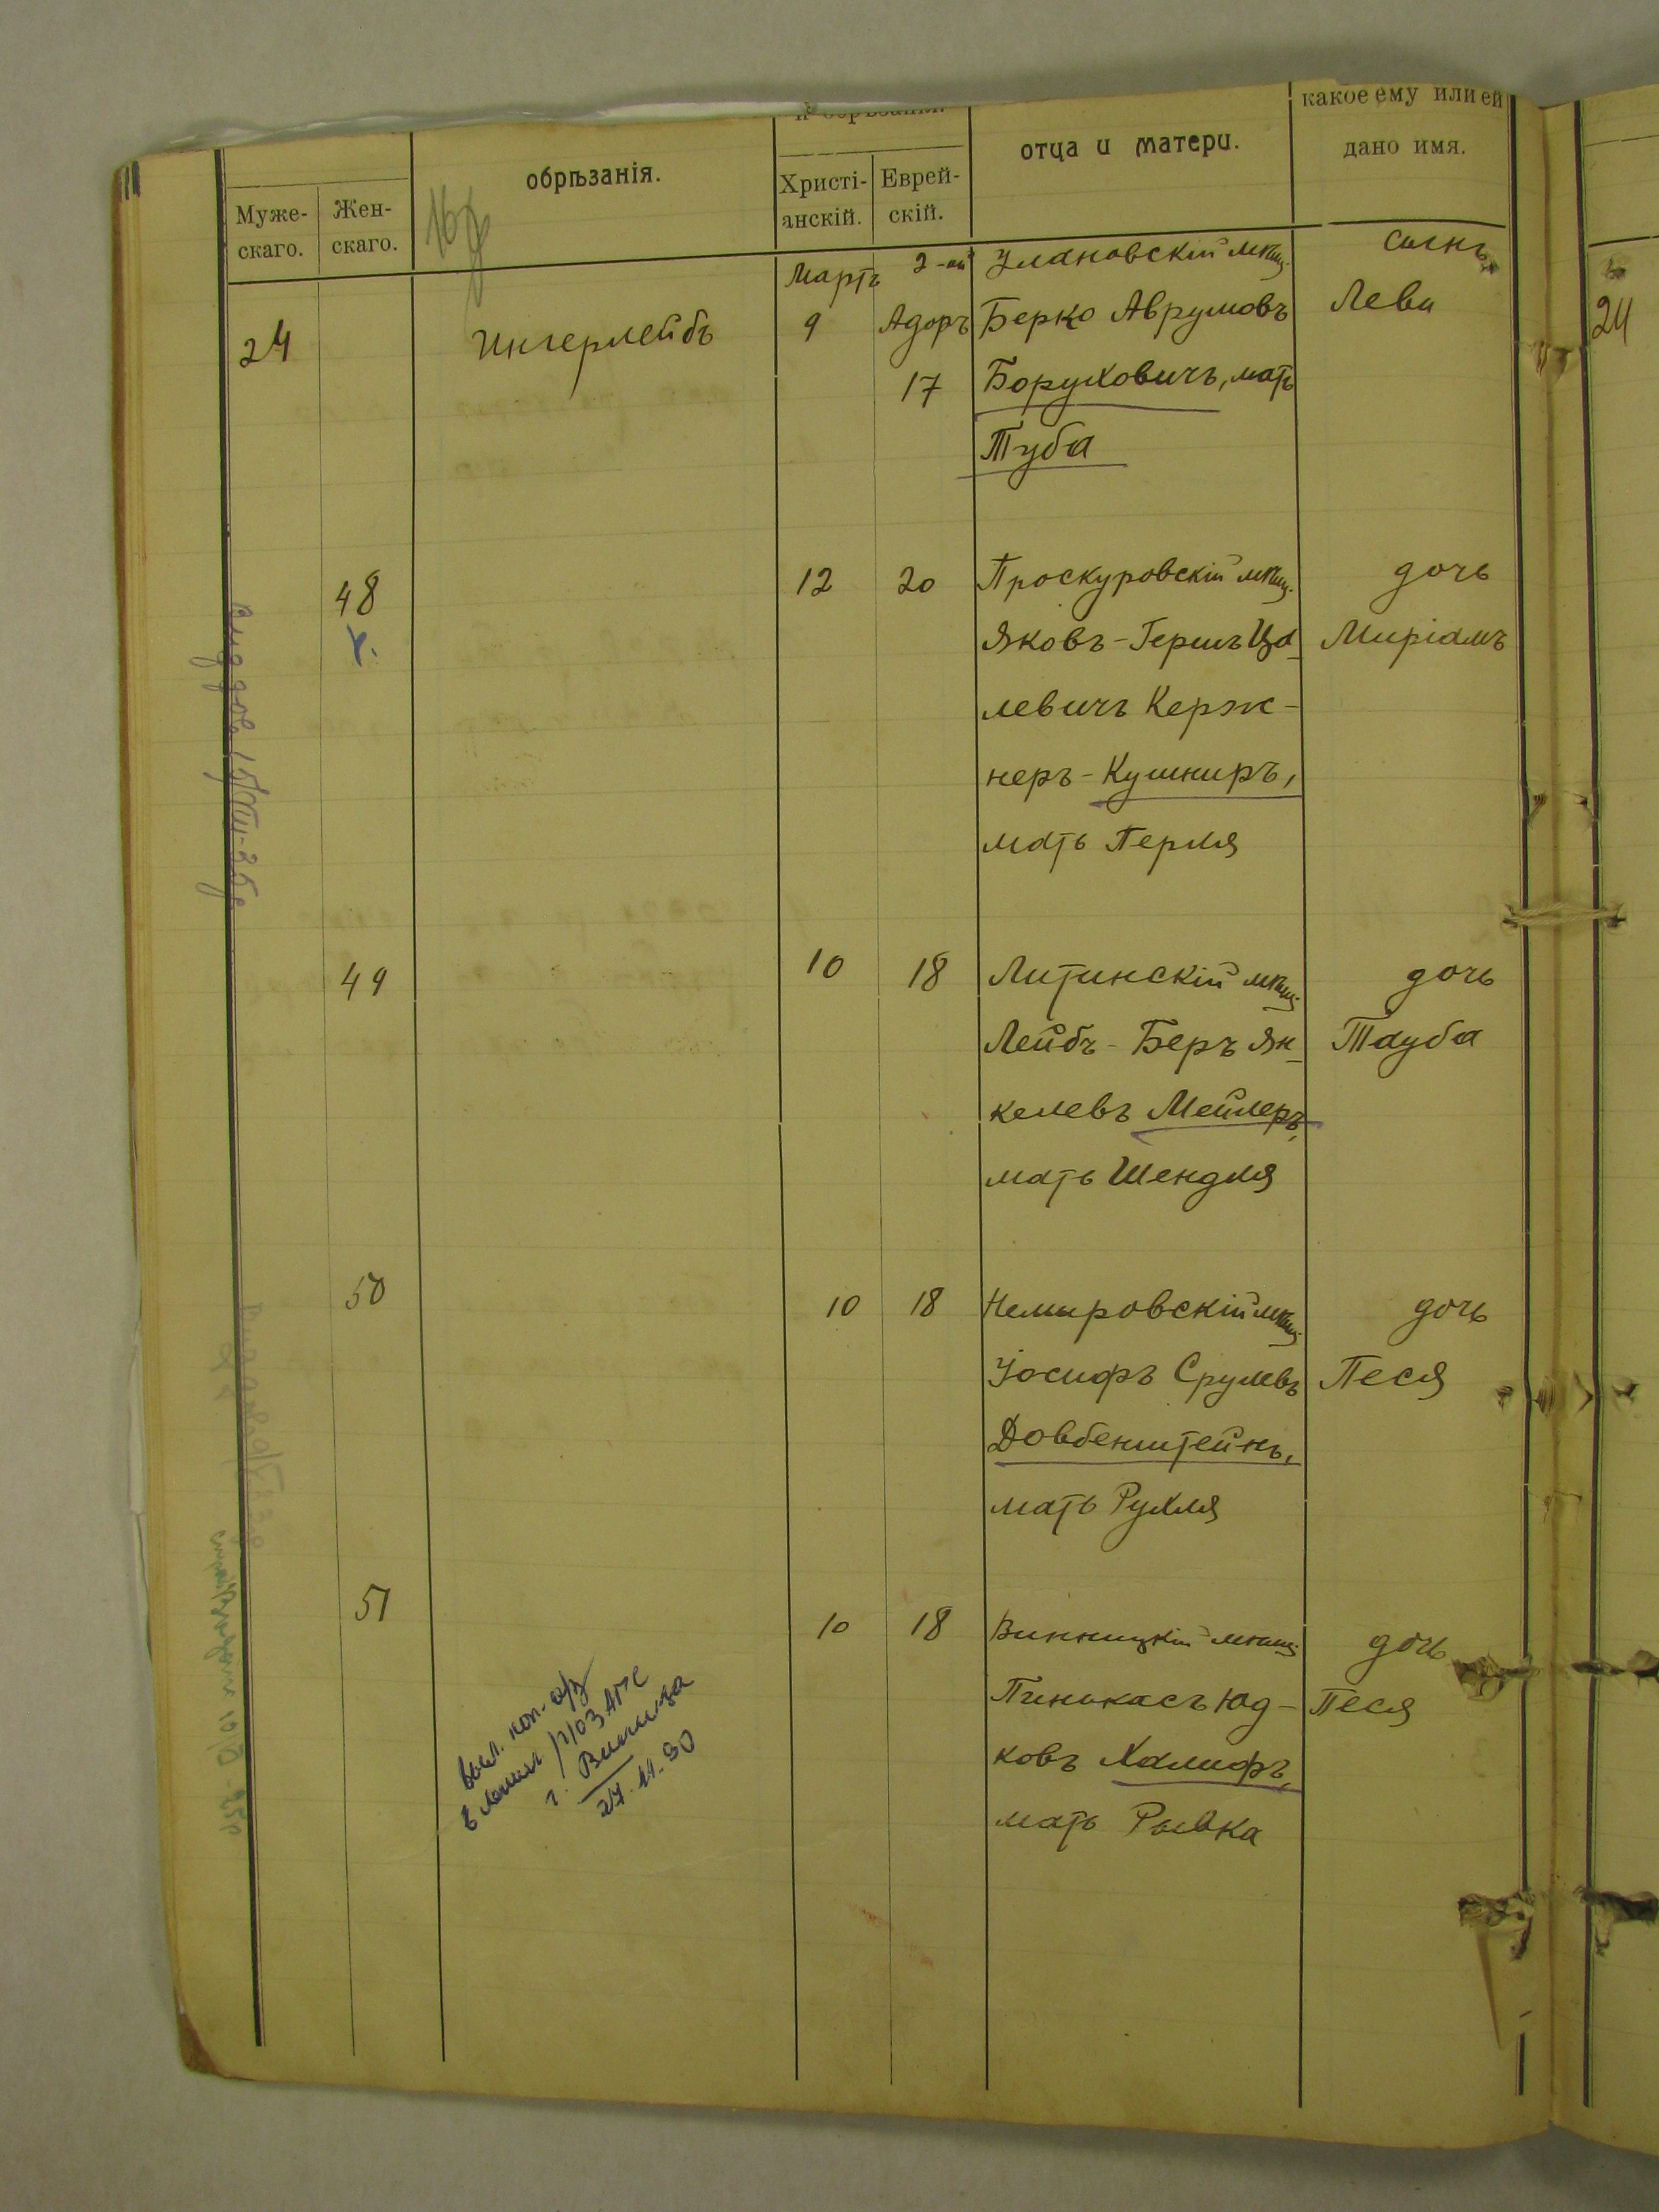 какое ему или ей
отца и матери.
дано имя.
обрѣзанія.
Христі-
анскій.
Еврей-
скій.
Муже-
скаго.
Жен-
скаго.
Мартъ 2-ой Улановскій мѣщ. сынъ
24 Ингерлейбъ 9 Адоръ Берко Аврумовъ Леви
17 Боруховичъ, мать
Туба
48 12 20 Проскуровскій мѣщ. дочь
Яковъ-Гершъ Ца- Миріамъ
левичъ Керж-
неръ-Кушниръ,
мать Перля
49 10 18 Литинскій мѣщ. дочь
Лейбъ-Беръ Ян- Тауба
келевъ Мейлеръ,
мать Шендля
50 10 18 Немировскій мѣщ. дочь
Іосифъ Срулевъ Песя
Довбенштейнъ,
мать Рухля
51 10 18 Винницкій мѣщ. дочь
Пинкасъ Юд- Песя
ковъ Халифъ,
мать Рывка
г. Винница
27.11.90
24